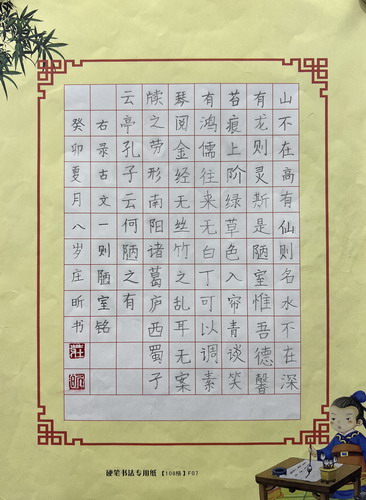 山不在高有仙则名水不在深
有龙则灵斯是陋室惟吾德馨
苔痕上阶绿草色入帘青谈笑
有鸿儒往来无白丁可以调素
琴阅金经无丝竹之乱耳无案
牍之劳形南阳诸葛庐西蜀子
云亭孔子云何陋之有
右录古文一则陋室铭
癸卯夏月八岁庄昕书
莊
昕
硬笔书法专用纸【108格】F07